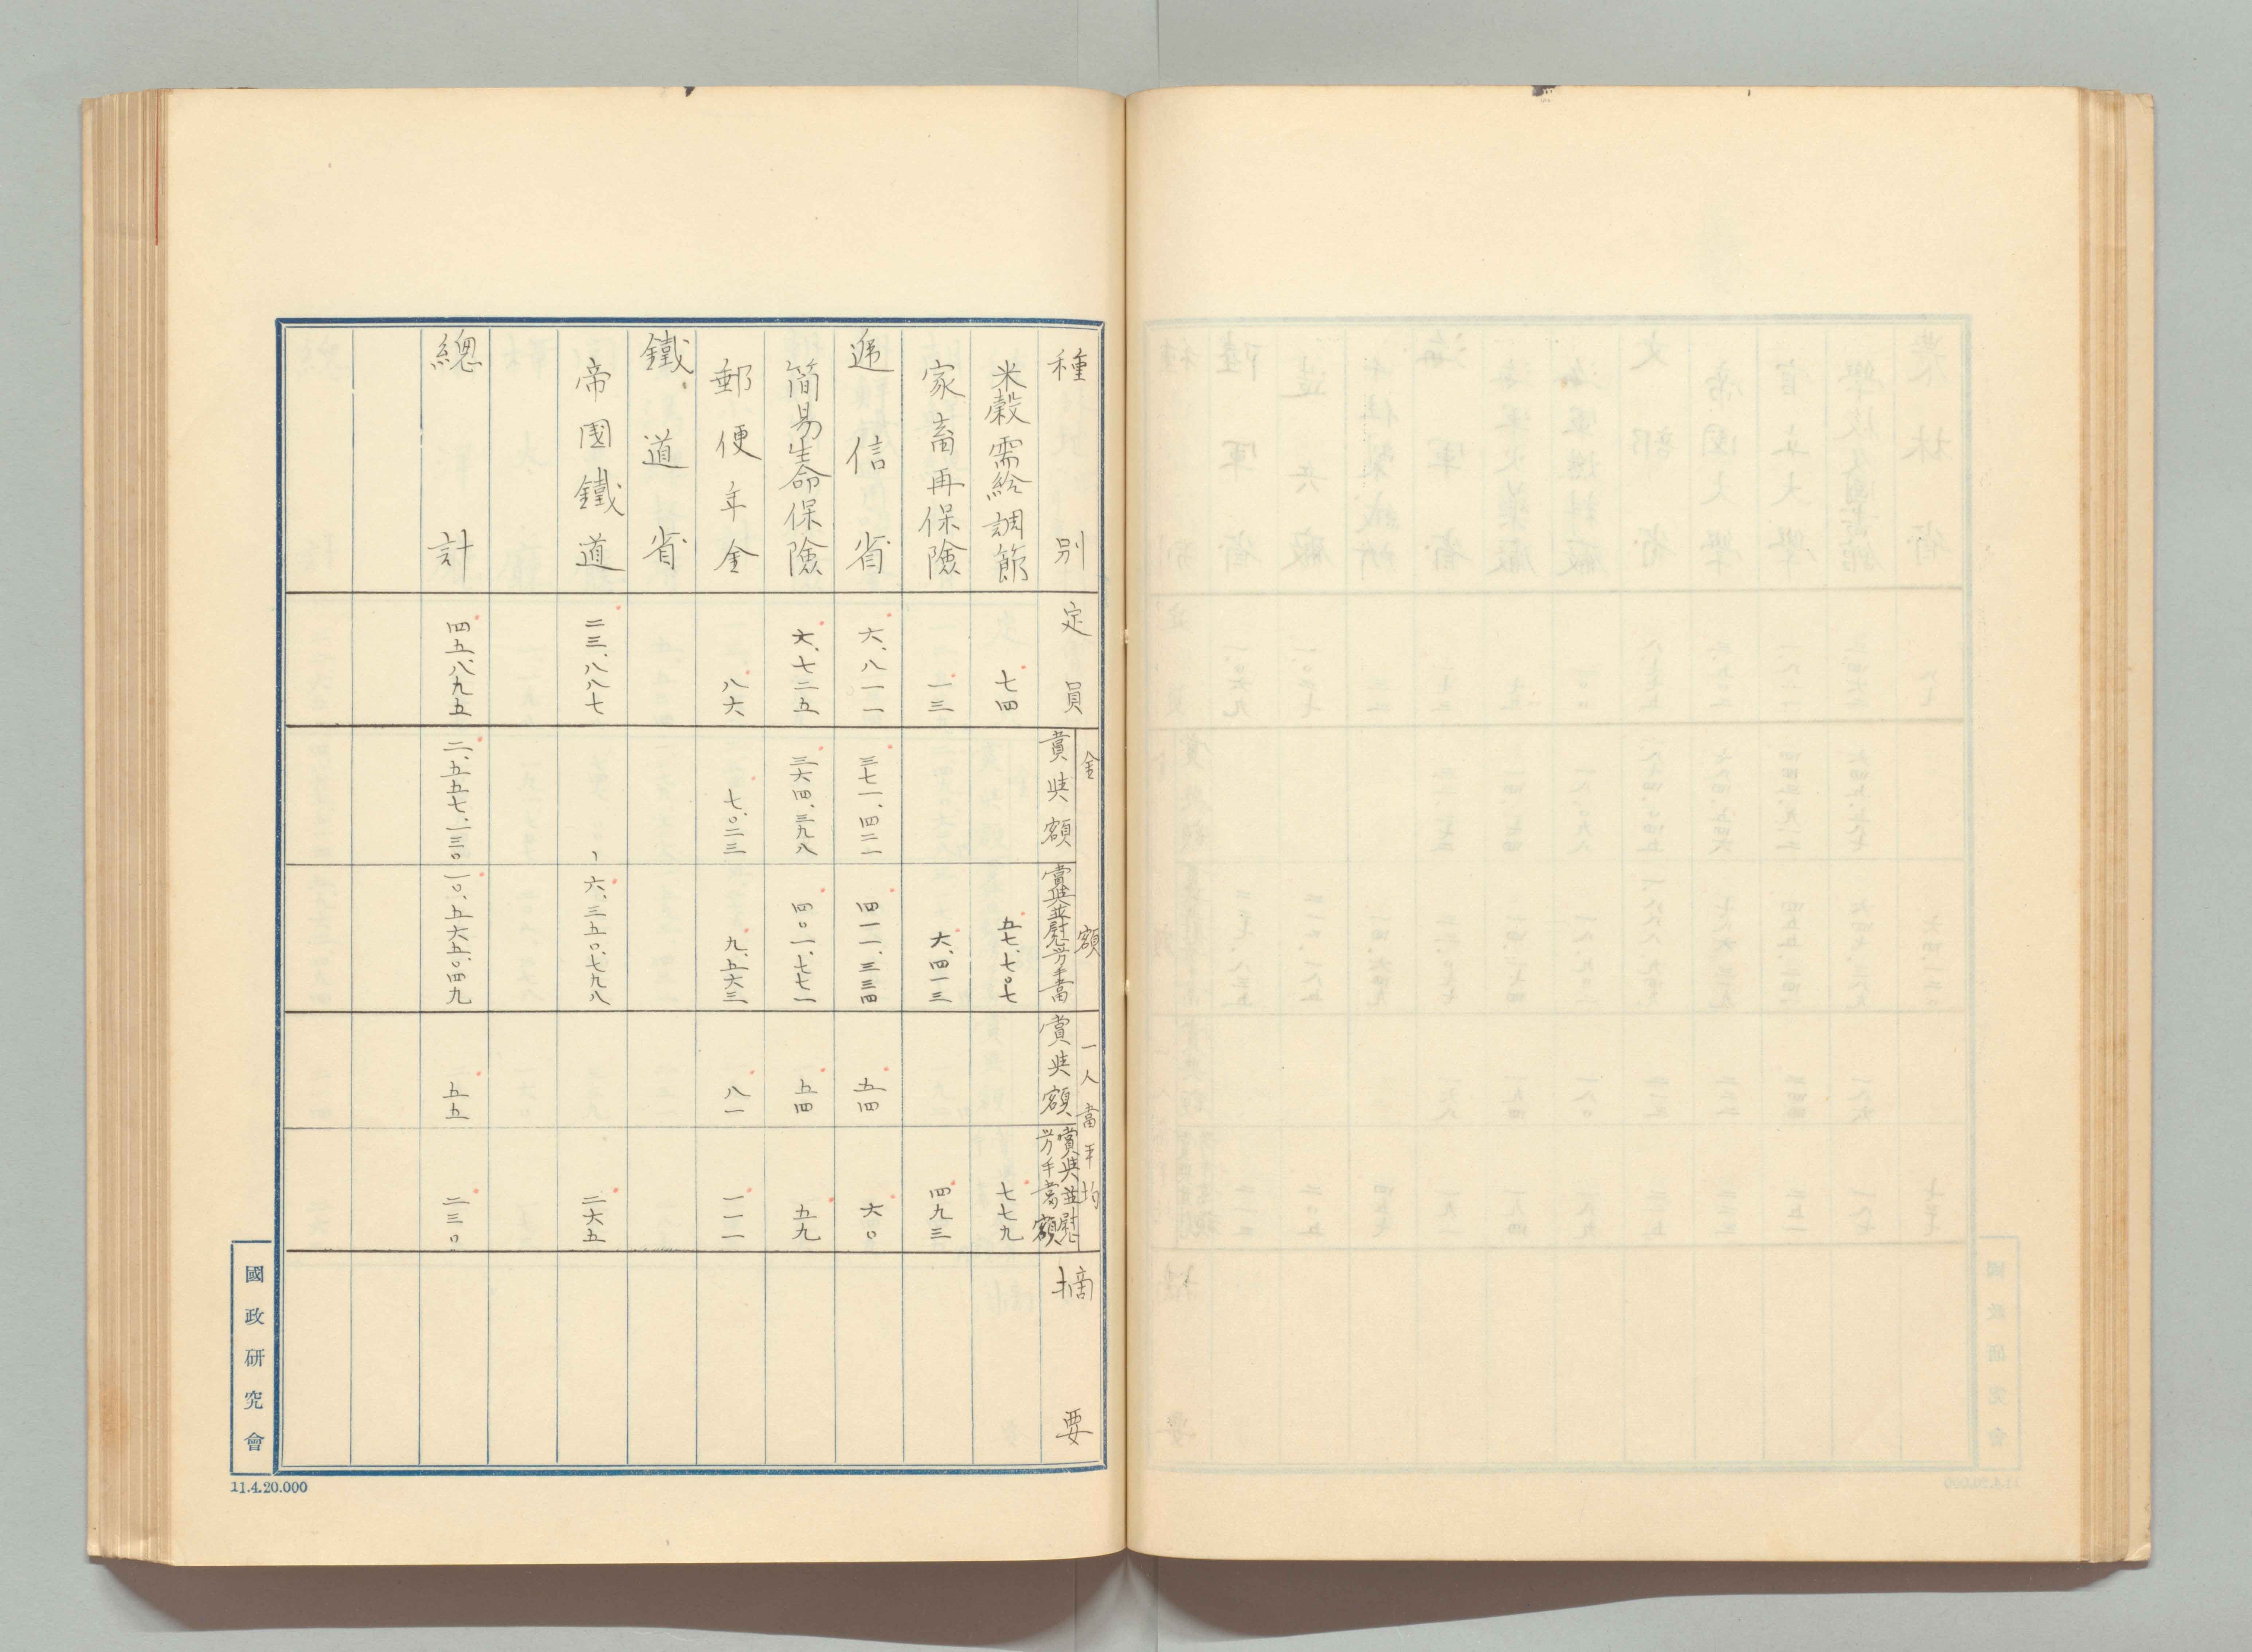 種別 定員 金額 賞典額 賞典並慰労手當 一人當平均 賞典額 賞典並慰労手當額 摘要
米穀需給調節 七四 五七、七〇七 七七九
家畜再保險 一三 六、四一三 四九三
逓信省 六、八一一 三七一、四二一 四一一、三三四 五四 六〇
簡易生命保險 六、七二五 三六四、三九八 四〇一、七七一 五四 五九
郵便年金 八六 七、〇二三 九、五六三 八一 一一一
鐵道省
帝國鐵道 二三、八八七 六、三五〇、七九八 二六五
總計 四五、八九五 二、五五七、一三〇 一〇、五六五、〇四九 五五 二三〇
國政研究會
11.4.20.000